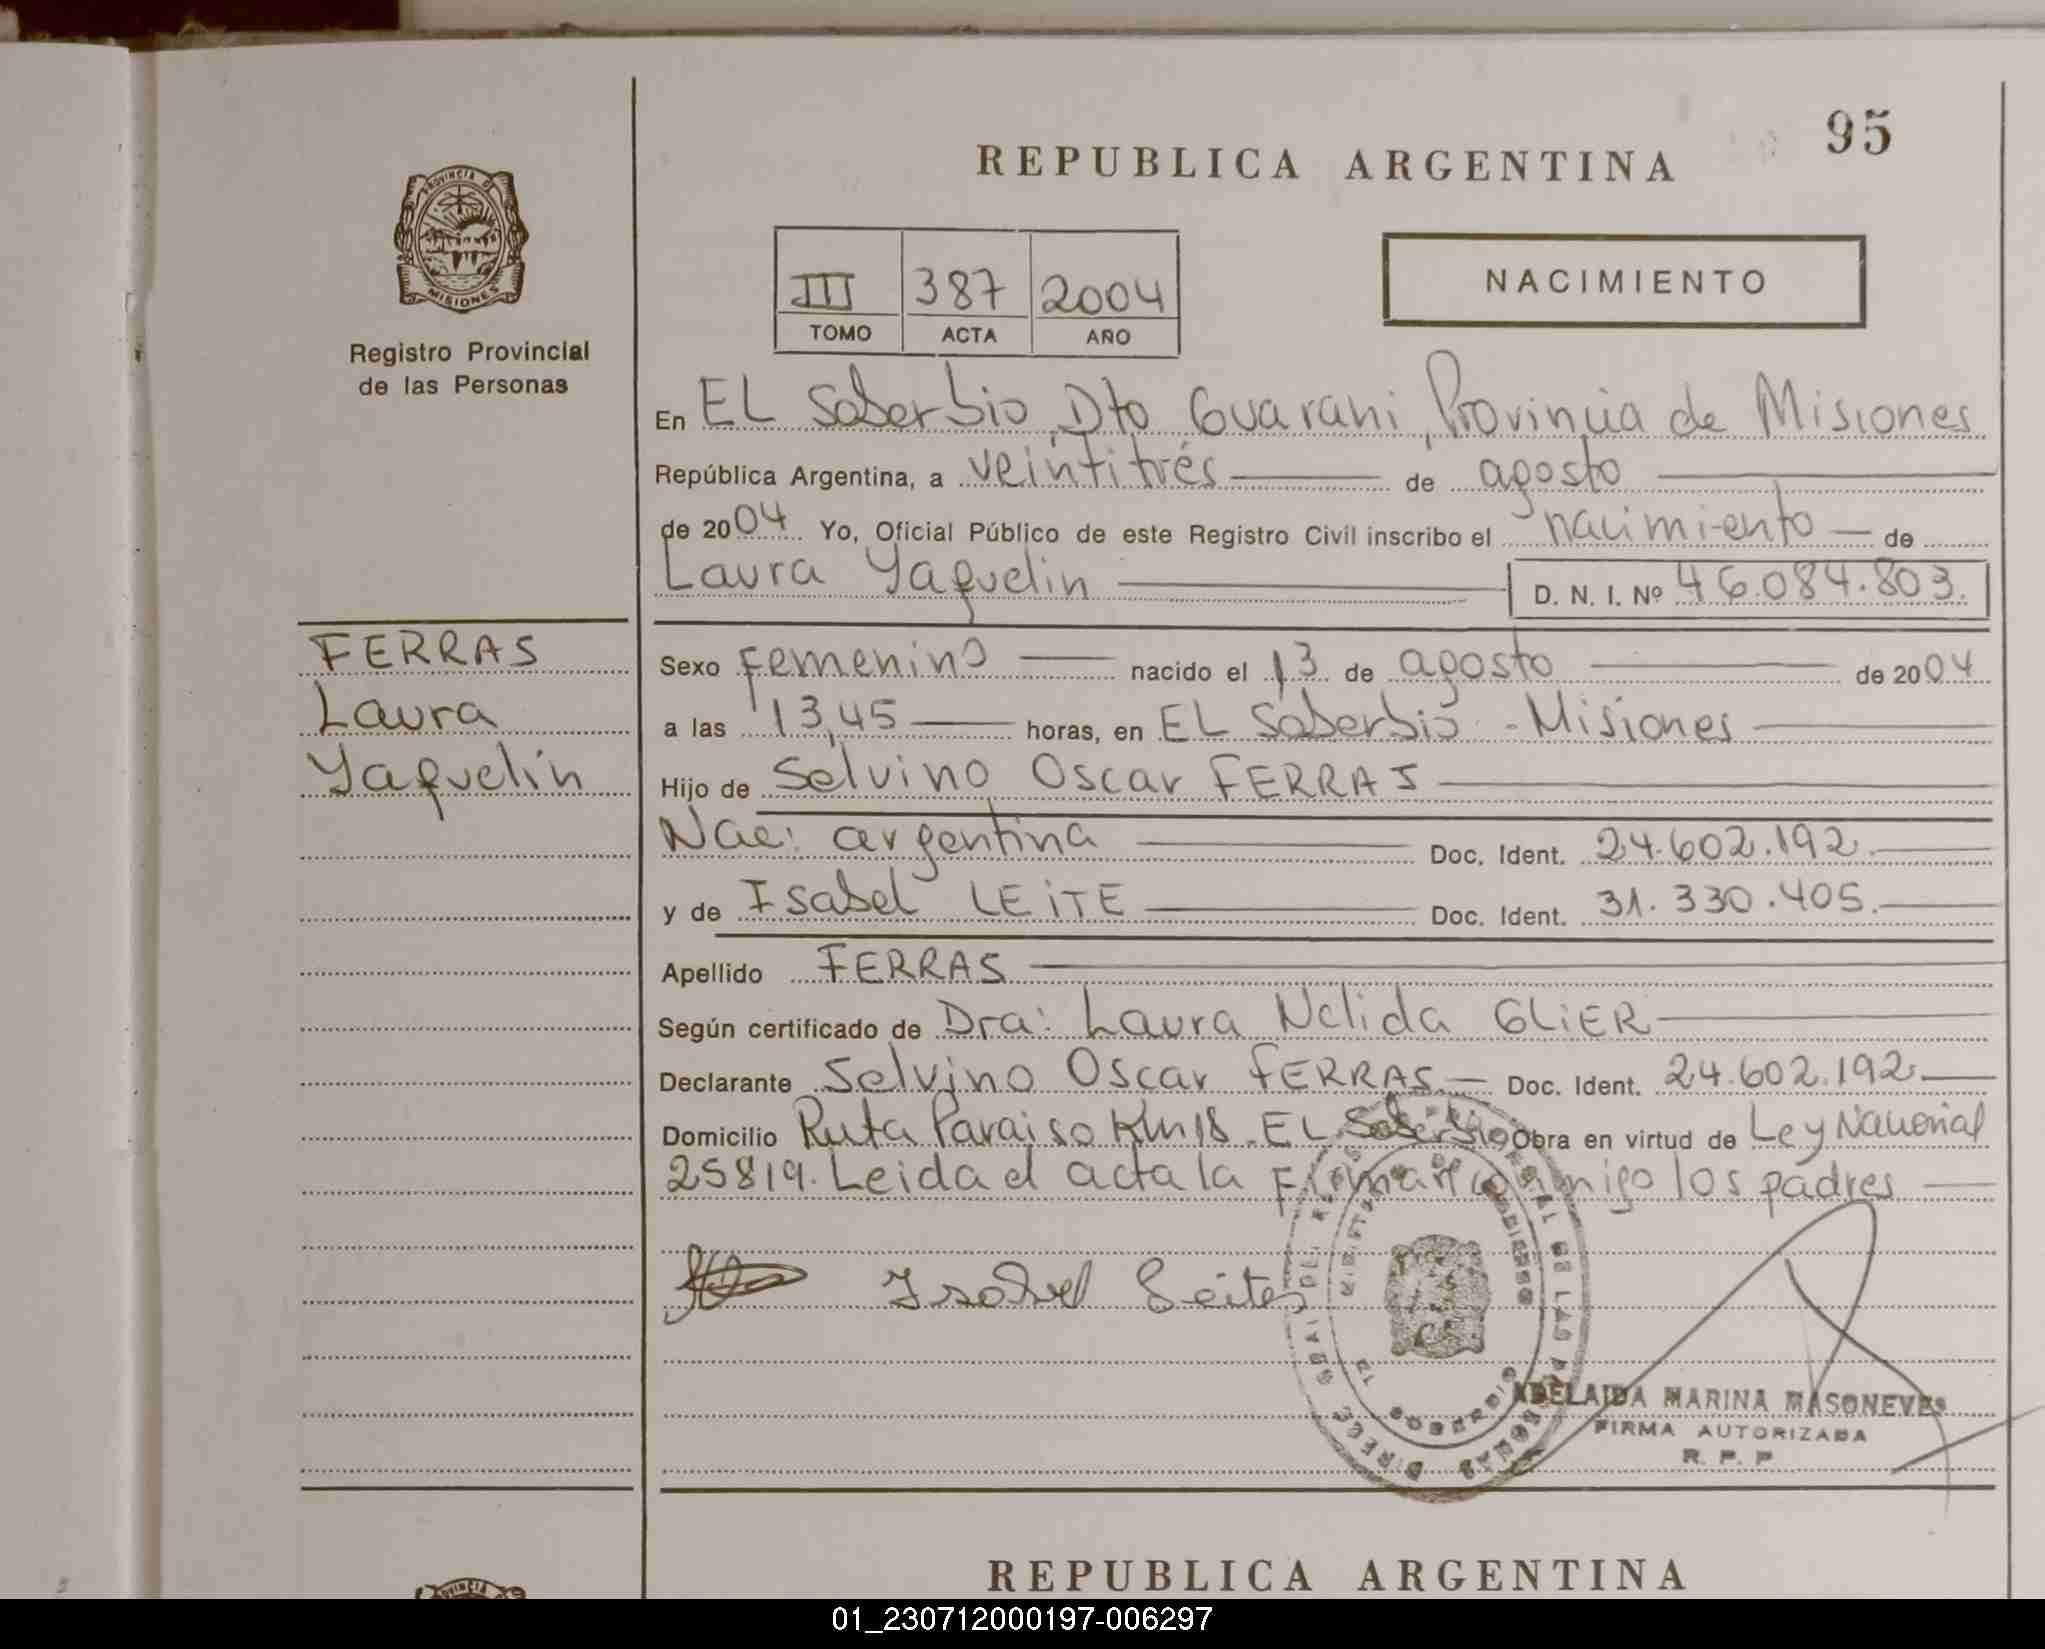 95
REPUBLICA ARGENTINA
PROVINCIA DE
MISIONES
Registro Provincial
de las Personas
III 387 2004
TOMO ACTA AÑO
NACIMIENTO
En EL Soberbio, Dto Guarani, Provincia de Misiones
República Argentina, a veintitrés de agosto
de 2004 Yo, Oficial Público de este Registro Civil inscribo el nacimiento de
Laura Yaquelin D. N. I. Nº 46.084.803.
FERRAS
Laura
Yaquelin
Sexo Femenino nacido el 13 de agosto de 2004
a las 13,45 horas, en EL Soberbio - Misiones
Hijo de Selvino Oscar FERRAS
Nac: argentina Doc. Ident. 24.602.192.
y de Isabel LEiTE Doc. Ident. 31.330.405.
Apellido FERRAS
Según certificado de Dra: Laura Nelida GLiER
Declarante Selvino Oscar FERRAS Doc. Ident. 24.602.192
Domicilio Ruta Paraiso Km 18 EL Soberbio Obra en virtud de Ley Nacional
25819. Leida el acta la Firman conmigo los padres
Isabel Leites
ADELAIDA MARINA MASONEVES
FIRMA AUTORIZADA
R. P. P
REPUBLICA ARGENTINA
PROVINCIA
01_230712000197-006297